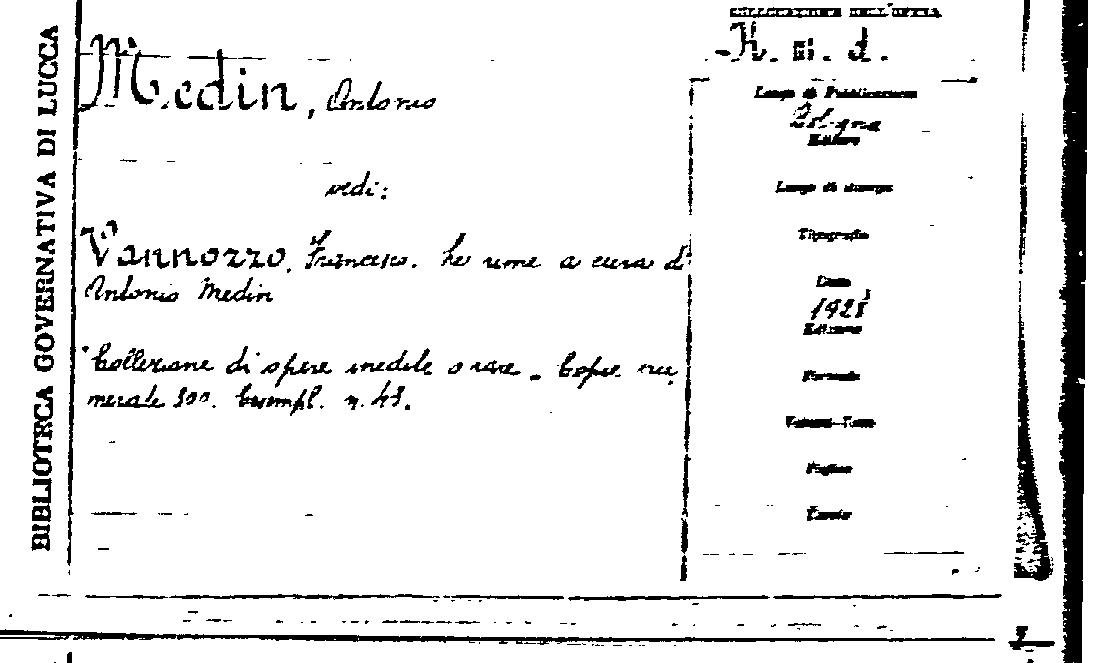 BIBLIOTECA GOVERNATIVA DI LUCCA
COLLOCAZIONE DELL'OPERA
K. m. d.
Medin, Antonio
vedi:
Vannozzo, Francesco. Le rime a cura di
Antonio Medin
Collezione di opere inedite o rare. Copie nu,
merate 300. Esempl. n. 43.
Luogo di Pubblicazione
Bologna
Editore
Luogo di stampa
Tipografia
Data
1928
Edizione
Formato
Volumi-Tomi
Pagine
Tavole